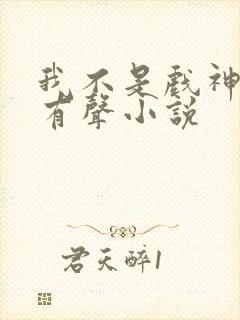 我不是戲神
有聲小說
君天醉1